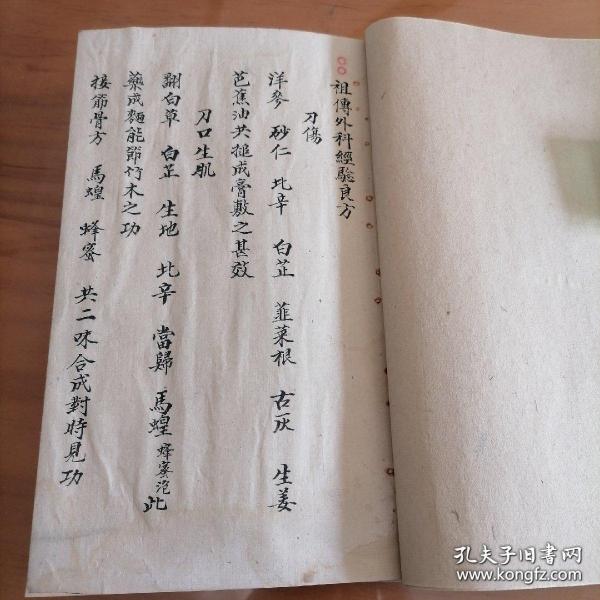 祖傳外科經驗良方
刀傷
洋麥 砂仁 北辛 白芷 韮菜根 古灰 生姜
芭蕉油共搥成膏敷之甚效
刀口生肌
翻白草 白芷 生地 北辛 當歸 馬蝗 蜂蜜泡 此
藥成麵能節竹木之功
接節骨方 馬蝗 蜂蜜 共二味合成對時見功
孔夫子旧书网
www.kongfz.com